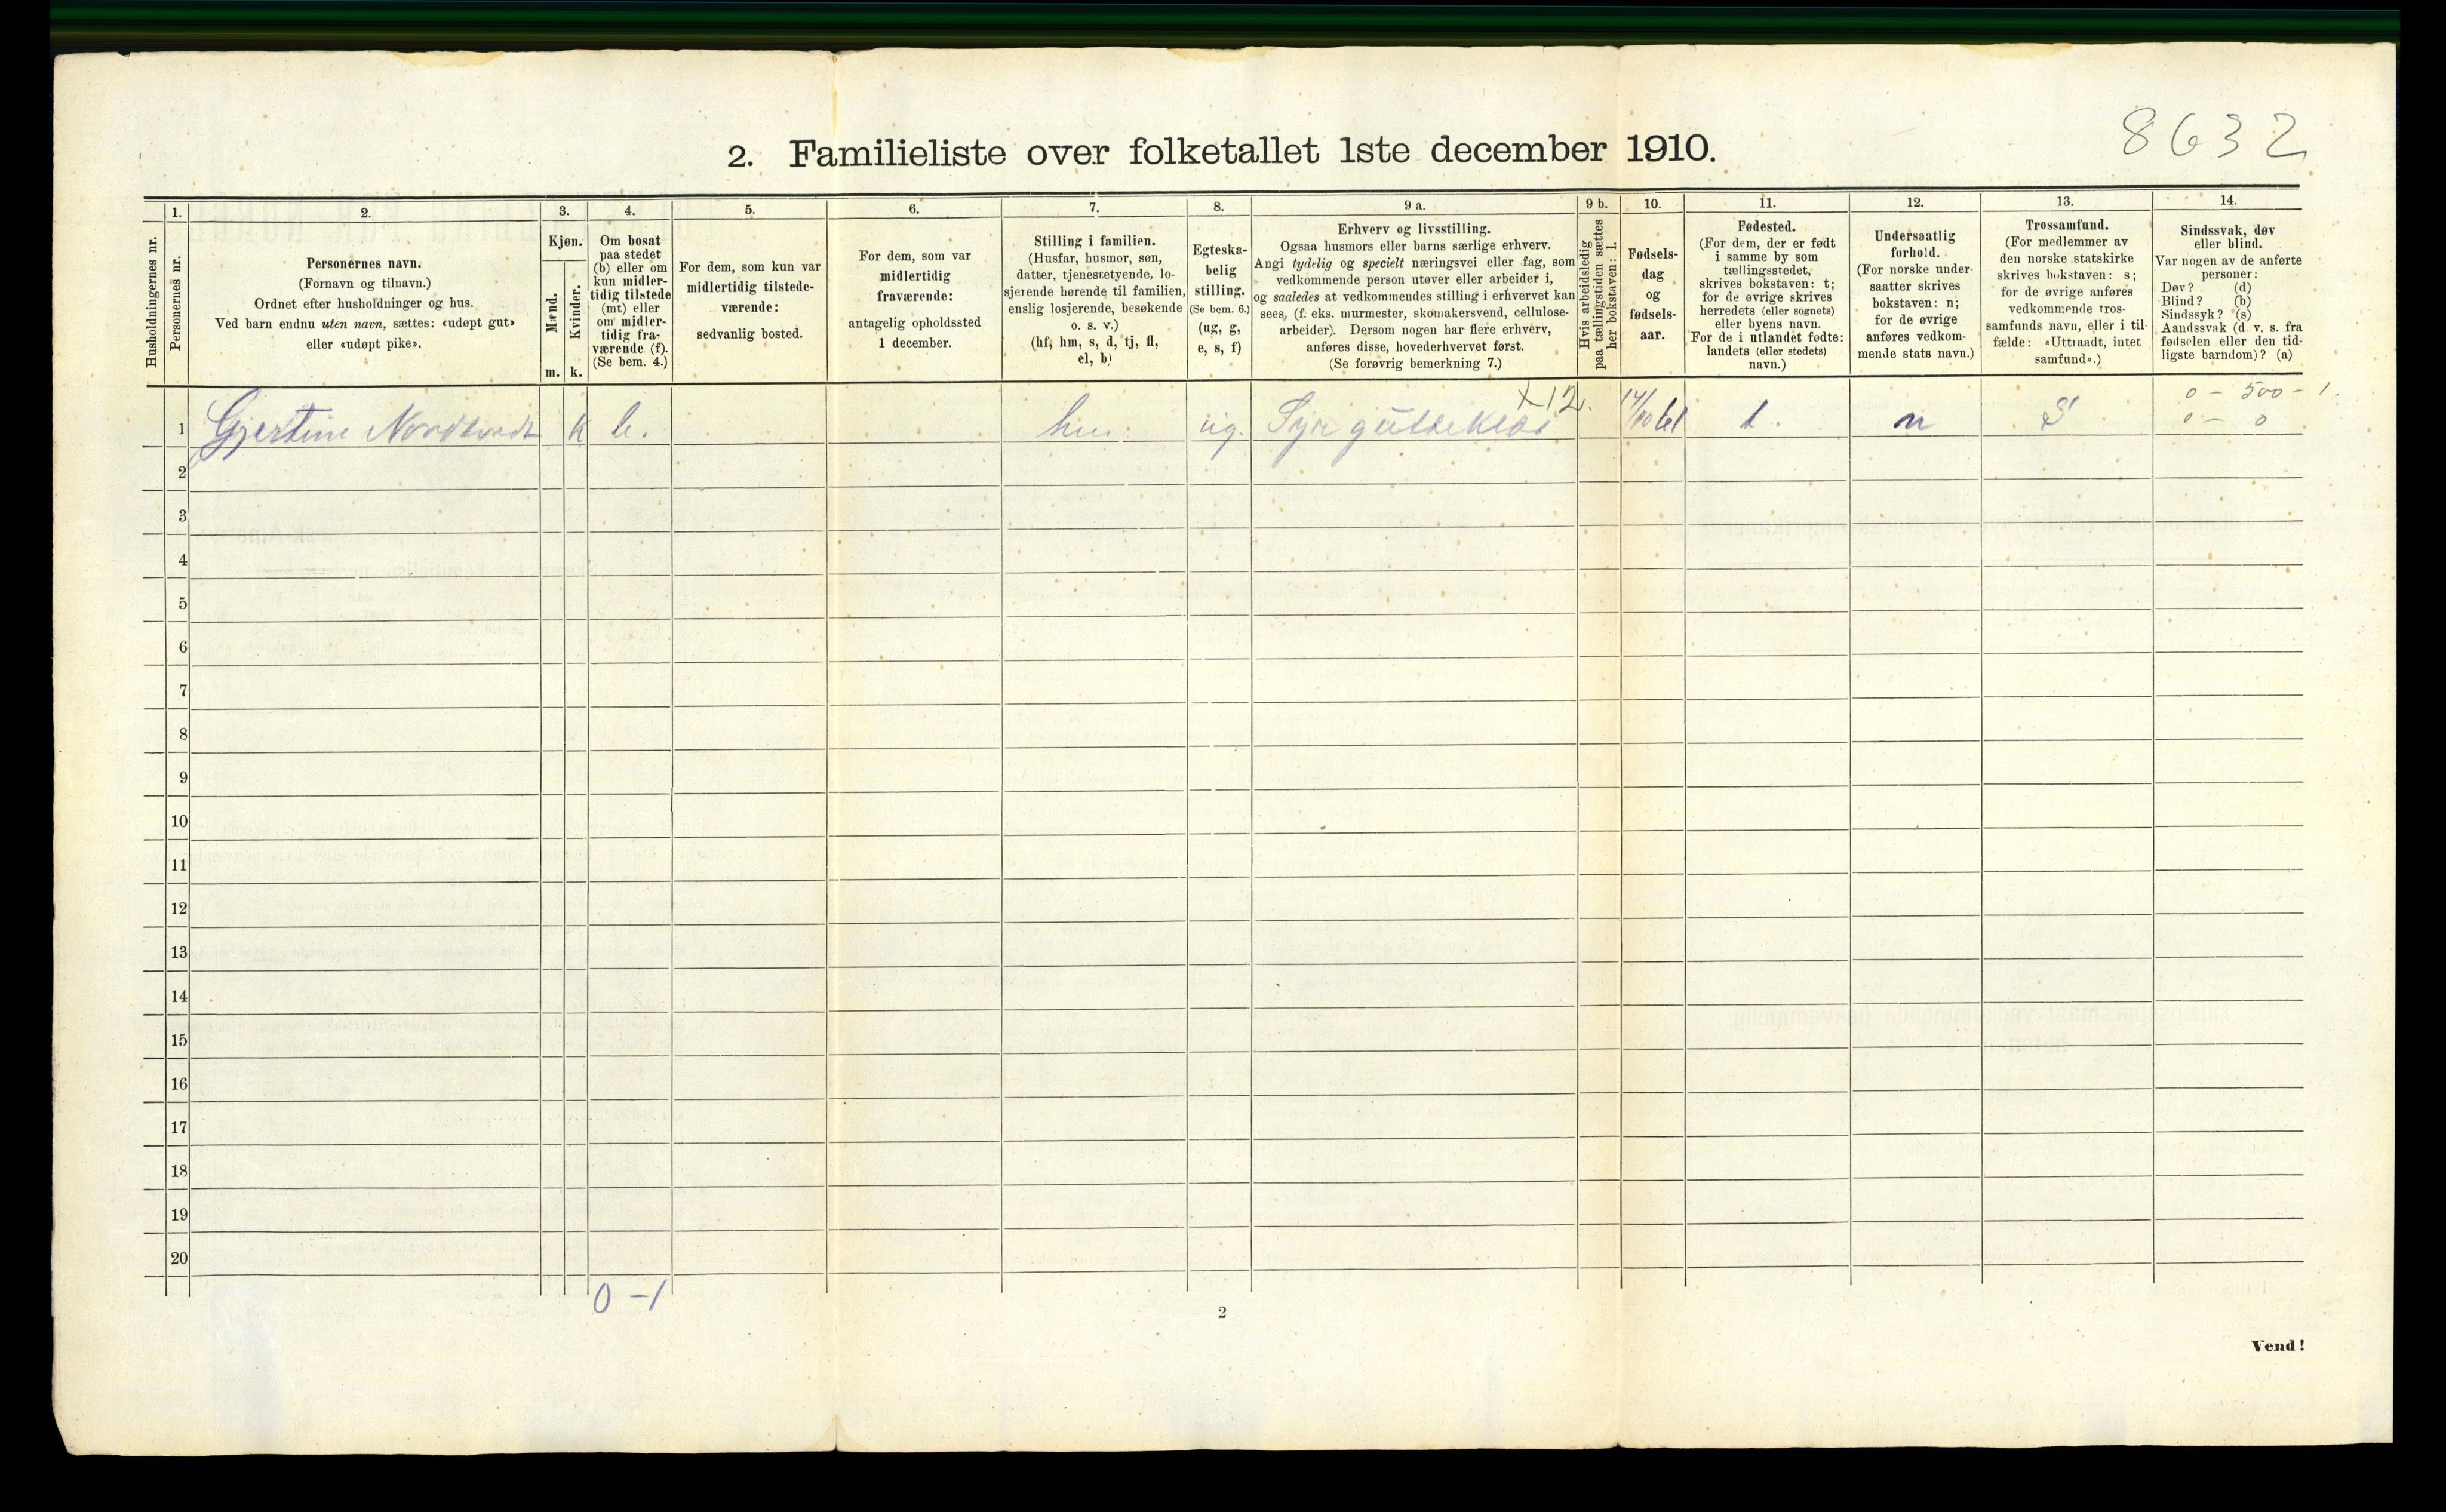 8632
2. Familieliste over folketallet 1ste december 1910.
Husholdningernes nr.
1.
Personernes nr.
2.
Personernes navn.
(Fornavn og tilnavn.)
Ordnet efter husholdninger og hus.
Ved barn endnu uten navn, sættes: «udøpt gut»
eller «udøpt pike».
3.
Kjøn.
Mænd.
Kvinder.
m. k.
4.
Om bosat
paa stedet
(b) eller om
kun midler-
tidig tilstede
(mt) eller
om midler-
tidig fra-
værende (f).
(Se bem. 4.)
5.
For dem, som kun var
midlertidig tilstede-
værende:
sedvanlig bosted.
6.
For dem, som var
midlertidig
fraværende:
antagelig opholdssted
1 december.
7.
Stilling i familien.
(Husfar, husmor, søn,
datter, tjenestetyende, lo-
sjerende hørende til familien,
enslig losjerende, besøkende
o. s. v.)
(hf, hm, s, d, tj, fl,
el, b)
8.
Egteska-
belig
stilling.
(Se bem. 6.)
(ug, g,
e, s, f)
9 a.
Erhverv og livsstilling.
Ogsaa husmors eller barns særlige erhverv.
Angi tydelig og specielt næringsvei eller fag, som
vedkommende person utøver eller arbeider i,
og saaledes at vedkommendes stilling i erhvervet kan
sees, (f. eks. murmester, skomakersvend, cellulose-
arbeider). Dersom nogen har flere erhverv,
anføres disse, hovederhvervet først.
(Se forøvrig bemerkning 7.)
9 b.
Hvis arbeidsledig
paa tællingstiden sættes
her bokstaven: l.
10.
Fødsels-
dag
og
fødsels-
aar.
11.
Fødested.
(For dem, der er født
i samme by som
tællingsstedet,
skrives bokstaven: t;
for de øvrige skrives
herredets (eller sognets)
eller byens navn.
For de i utlandet fødte:
landets (eller stedets)
navn.)
12.
Undersaatlig
forhold.
(For norske under-
saatter skrives
bokstaven: n;
for de øvrige
anføres vedkom-
mende stats navn.)
13.
Trossamfund.
(For medlemmer av
den norske statskirke
skrives bokstaven: s;
for de øvrige anføres
vedkommende tros-
samfunds navn, eller i til-
fælde: «Uttraadt, intet
samfund».)
14.
Sindssvak, døv
eller blind.
Var nogen av de anførte
personer:
Døv? (d)
Blind? (b)
Sindssyk? (s)
Aandssvak (d. v. s. fra
fødselen eller den tid-
ligste barndom)? (a)
X12. 0 – 500 – 1.
1 Gjertine k b. hm. ug. Syr gutteklær t. n S 0 – 0
2
3
4
5
6
7
8
9
10
11
12
13
14
15
16
17
18
19
20
0 – 1
2
Vend!